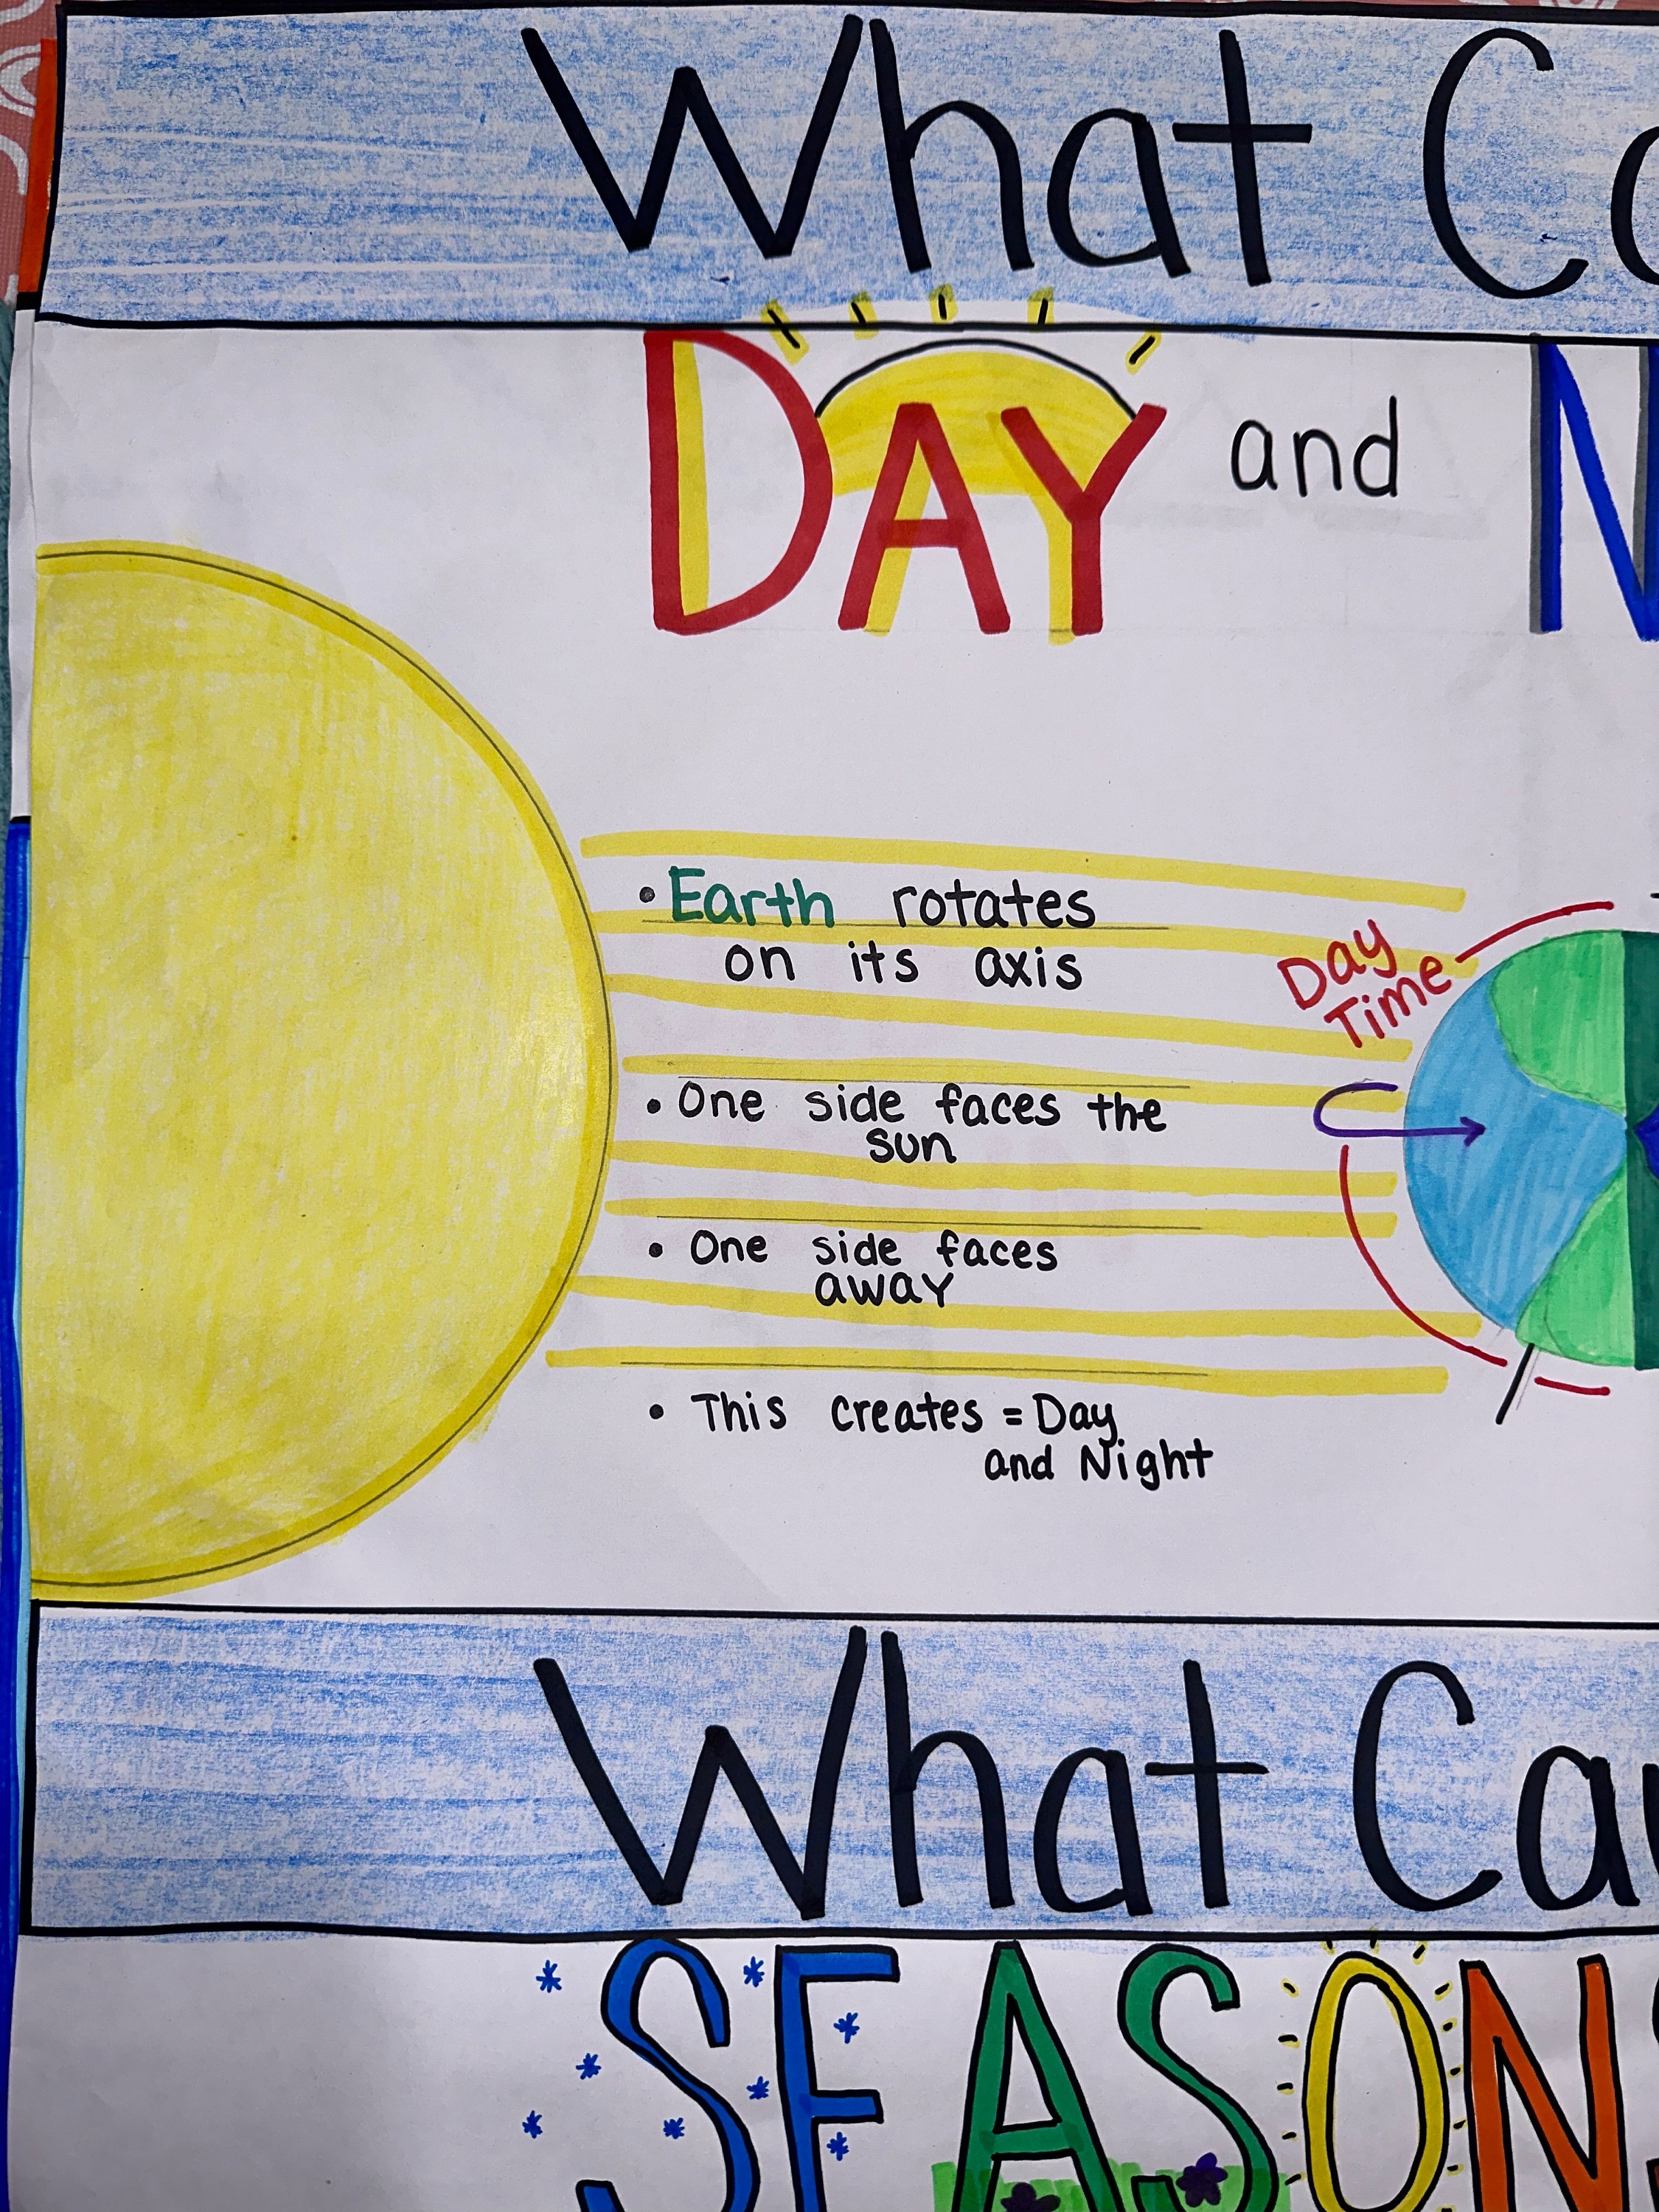 What Ca
DAY and N
• Earth rotates
on its axis
Day
Time
• One side faces the
sun
• One side faces
away
• This creates = Day
and Night
What Cau
SEASONS